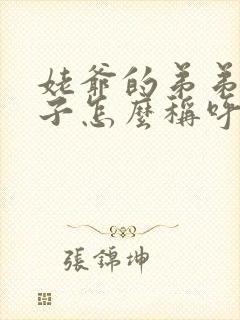 姥爺的弟弟
子怎麼稱呼
張錦坤